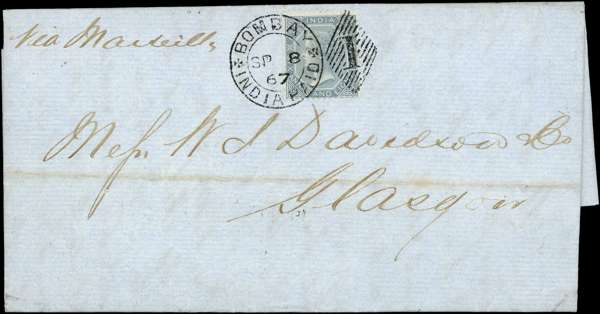 via Marseills
BOMBAY
SP 8
67
INDIA PAID
INDIA
AND
Messrs W J Davidson & Co
Glasgow